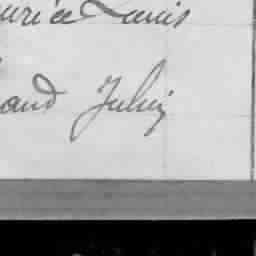 urice Louis
and Julien